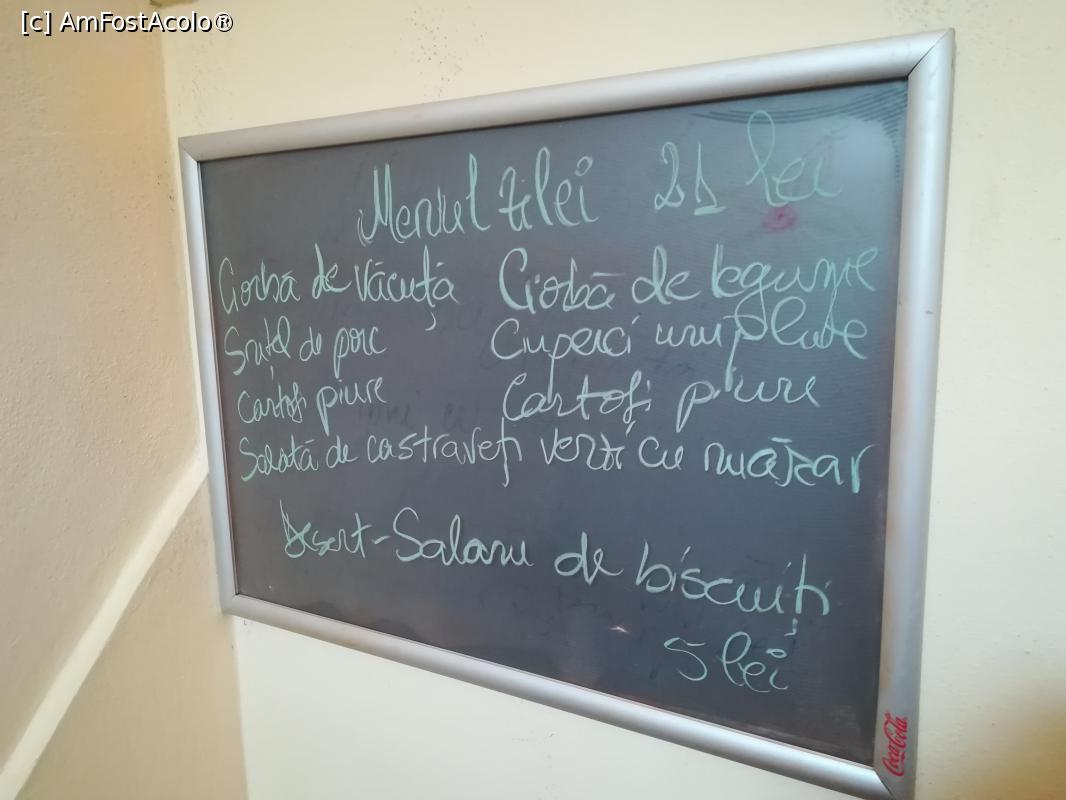 [c] AmFostAcolo®
Meniul zilei 21 lei
Ciorbă de văcuță Ciorbă de legume
Snițel de porc Ciuperci umplute
Cartofi piure Cartofi piure
Salată de castraveți verzi cu mărar
Desert - Salam de biscuiți
5 lei
Coca-Cola